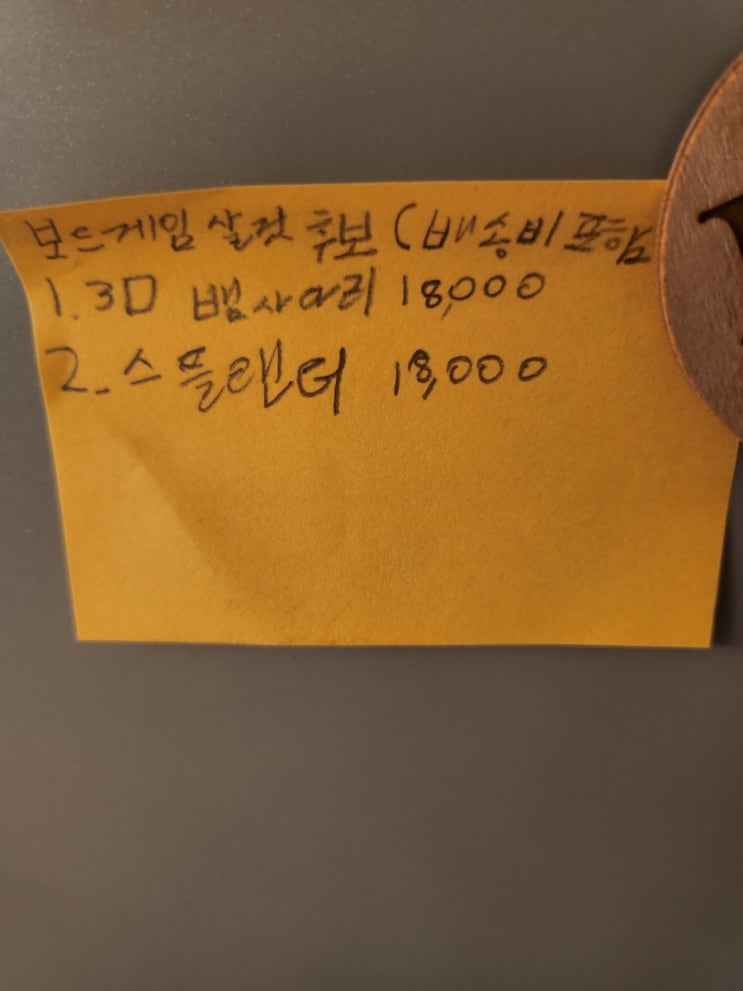 보드게임 살것 후보 (배송비 포함
1. 3D 뱀사다리 18,000
2. 스플랜더 18,000